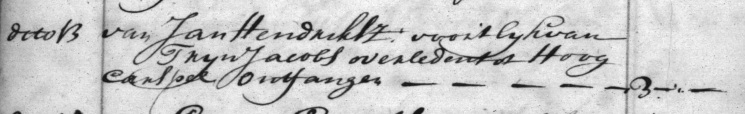 dito 13 van Jan Hendricksz: voor 't lijk van
Trijn Jacobs overleden tot Hoog
Carspel ontfangen — — — — — 3 — „ —